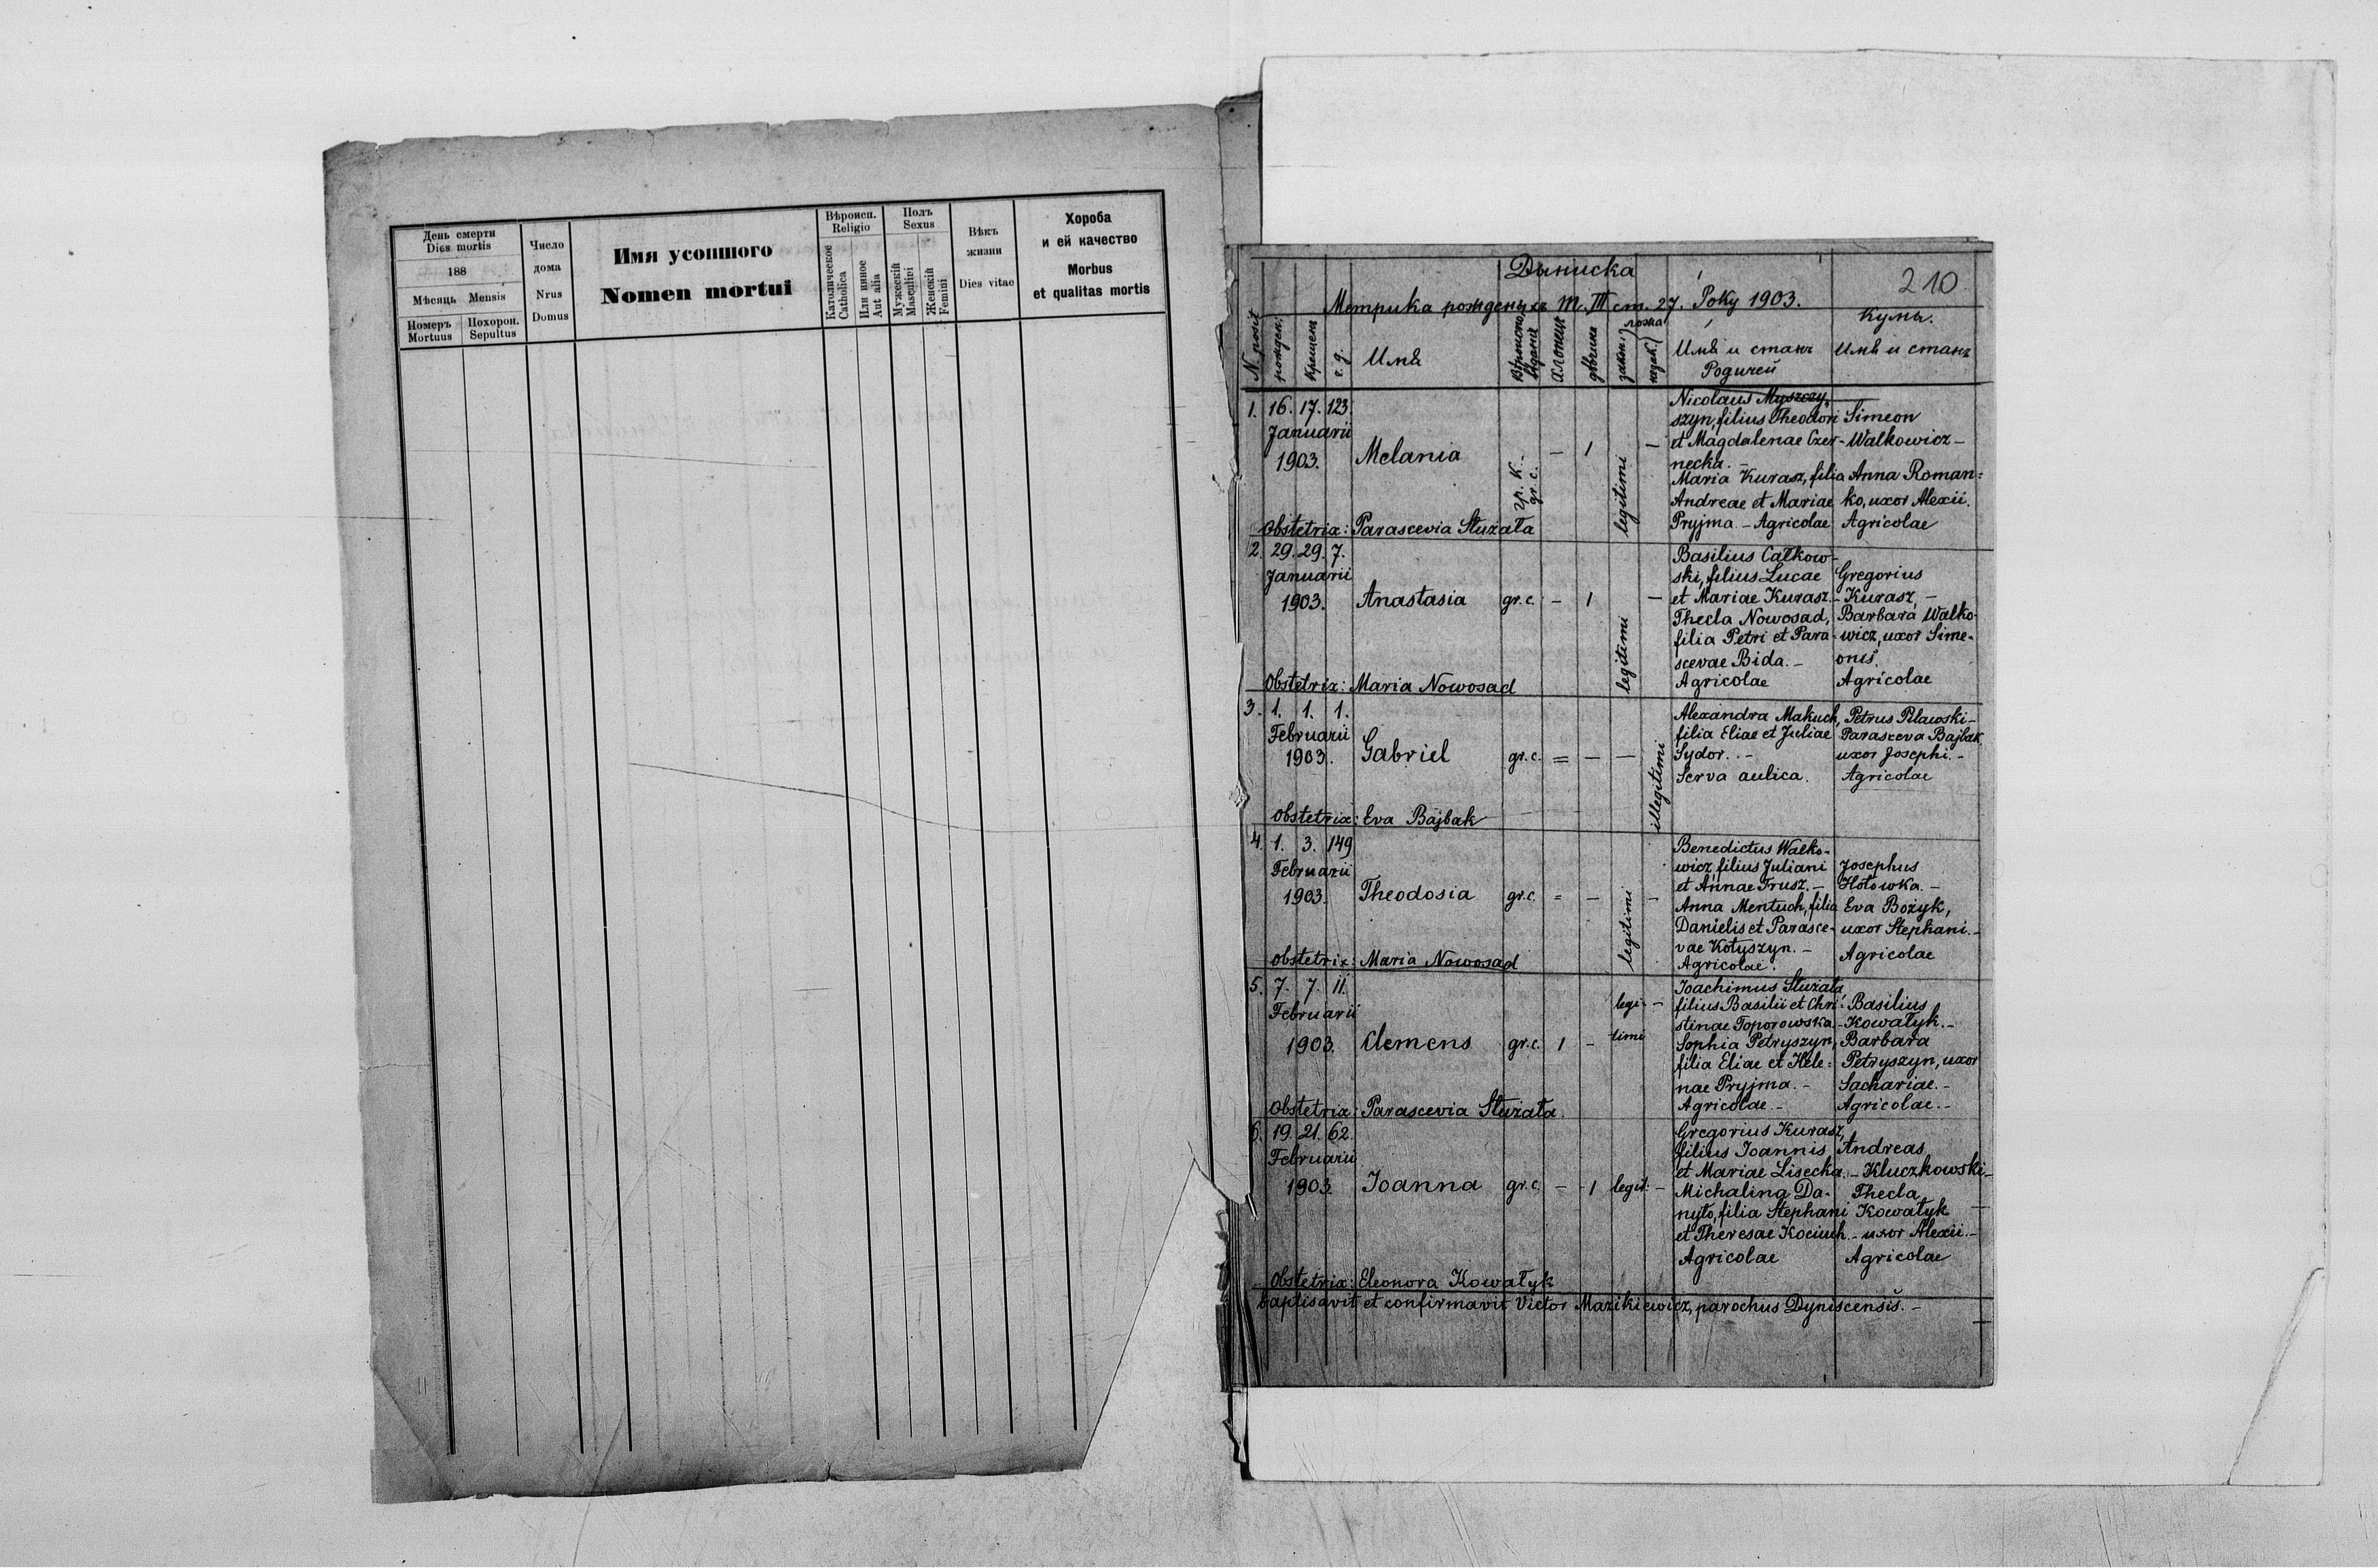 День смерти
Dies mortis
188
Мѣсяць Mensis
Номеръ
Mortuus
Похорон.
Sepultus
Число
дома
Nrus
Domus
Имя усопшого
Nomen mortui
Вѣроисп.
Religio
Католическое
Catholica
Или инное
Aut alia
Полъ
Sexus
Мужескій
Masculini
Женскій
Femini
Вѣкъ
жизни
Dies vitae
Хороба
и ей качество
Morbus
et qualitas mortis
Дыниска
210
Метрика рожденыхъ Т. III ст. 27. Року 1903.
N. posit
рожден.
Крещен
ч. д.
Имѣ
хлопець
дѣвчина
ложа
Имѣ и станъ
Родичей
Кумы.
Имѣ и станъ
1. 16. 17. 123.
Januarii
1903.
Melania
гр. к.
gr. c.
– 1
legitimi
–
Nicolaus Myszczy-
szyn, filius Theodori
et Magdalenae Czer-
necka. –
Maria Kurasz, filia
Andreae et Mariae
Pryjma. – Agricolae
Simeon
Walkowicz –
Anna Roman=
ko, uxor Alexii.
Agricolae
Obstetrix: Parascevia Służała
2. 29. 29. 7.
Januarii
1903.
Anastasia
gr. c. – 1
legitimi
–
Basilius Całkow-
ski, filius Lucae
et Mariae Kurasz. –
Thecla Nowosad,
filia Petri et Para-
scevae Bida. –
Agricolae
Gregorius
Kurasz, –
Barbara Walko-
wicz, uxor Sime-
onis.
Agricolae
Obstetrix: Maria Nowosad
3. 1. 1. 1.
Februarii
1903.
Gabriel
gr. c. = – –
illegitimi
Alexandra Makuch,
filia Eliae et Juliae
Sydor. . –
Serva aulica.
Petrus Pilawski –
Parasceva Bajbak
uxor Josephi. –
Agricolae
Obstetrix: Eva Bajbak
4. 1. 3. 149
Februarii
1903.
Theodosia
gr. c. = –
legitimi
–
Benedictus Walko-
wicz, filius Juliani
et Annae Trusz. –
Anna Mentuch, filia
Danielis et Parasce-
vae Kotyszyn. –
Agricolae.
Josephus
Hołowka. –
Eva Bożyk,
uxor Stephani. –
Agricolae
Obstetrix: Maria Nowosad
5. 7. 7. 11.
Februarii
1903.
Clemens
gr. c. 1 –
legi-
timi
–
Joachimus Służała,
filius Basilii et Chri-
stinae Toporowska. –
Sophia Petryszyn,
filia Eliae et Hele=
nae Pryjma. –
Agricolae –
Basilius
Kowałyk. –
Barbara
Petryszyn, uxor
Sachariae. –
Agricolae. –
Obstetrix: Parascevia Służała
6. 19. 21. 62.
Februarii
1903.
Joanna
gr. c. – 1 legit: –
Gregorius Kurasz,
filius Joannis
et Mariae Lisecka. –
Michalina Da-
nyło, filia Stephani
et Theresae Kociuch. –
Agricolae
Andreas
Kluczkowski –
Thecla
Kowałyk
uxor Alexii. –
Agricolae
Obstetrix: Eleonora Kowałyk
baptisavit et confirmavit Victor Mazikiewicz, parochus Dyniscensis. –